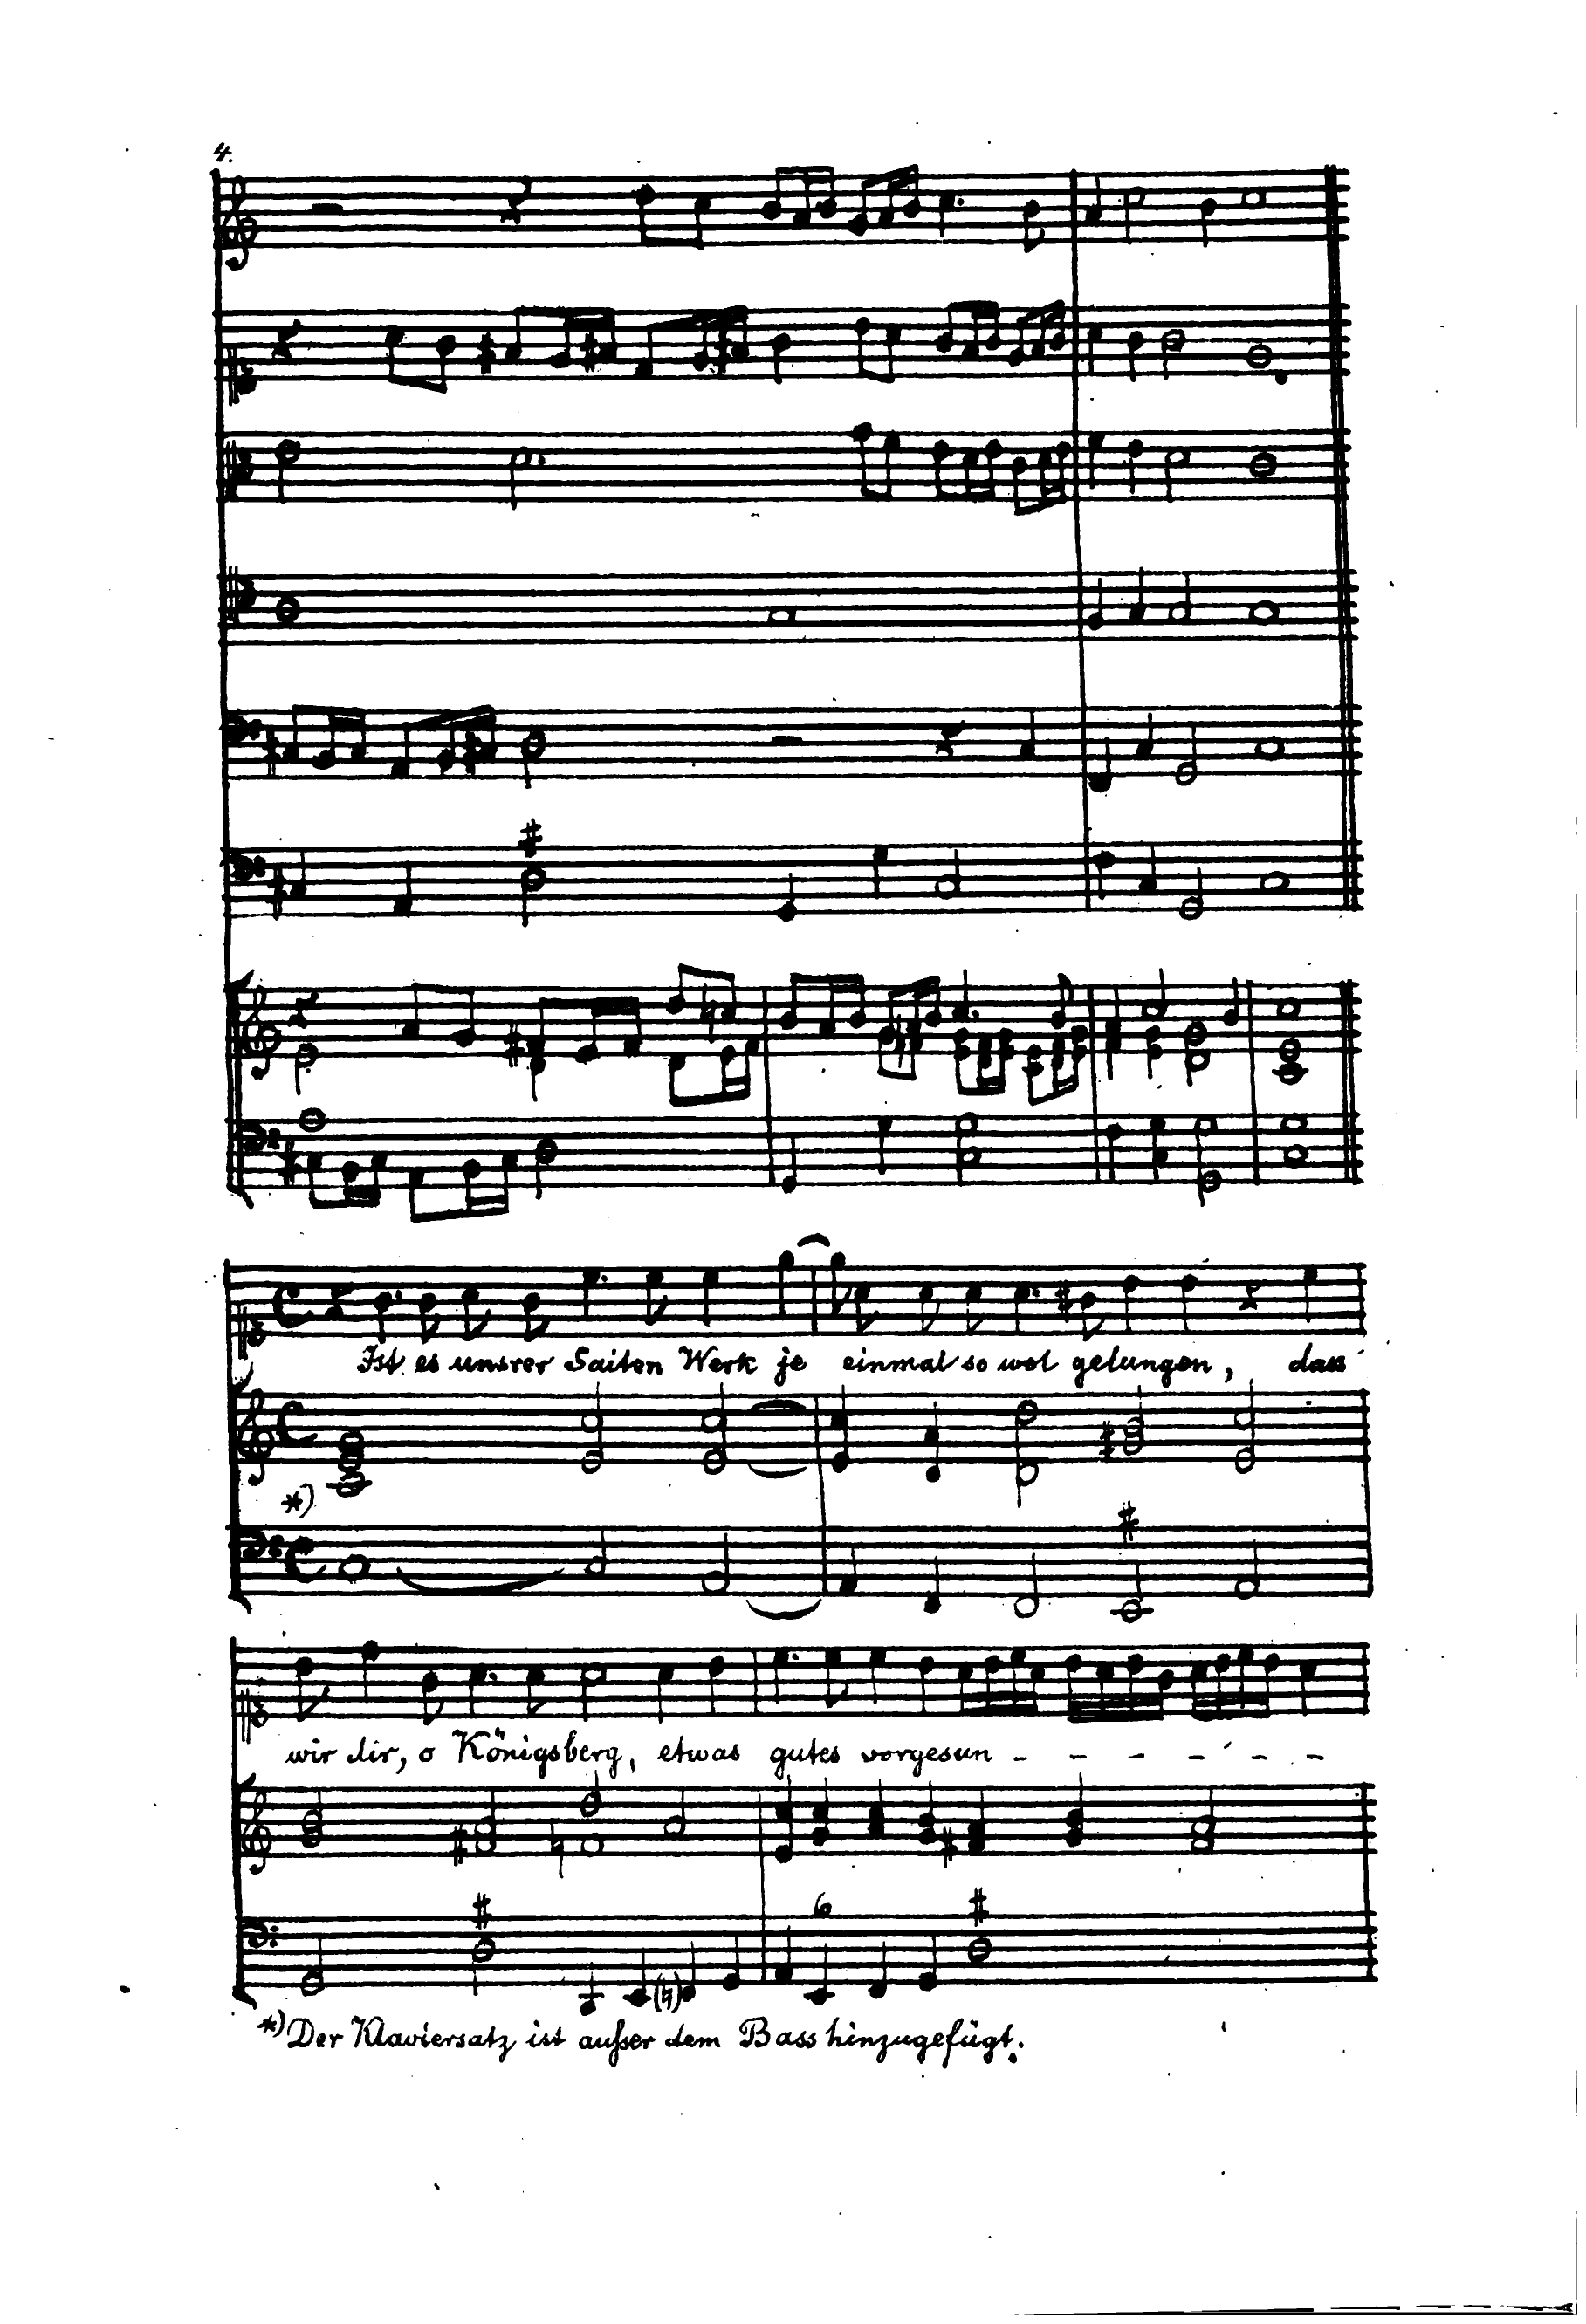 4.
Ist es unsrer Saiten Werk je einmal so wol gelungen, dass
*)
wir dir, o Königsberg, etwas gutes vorgesun - - - - - -
6
*) Der Klaviersatz ist außer dem Bass hinzugefügt.